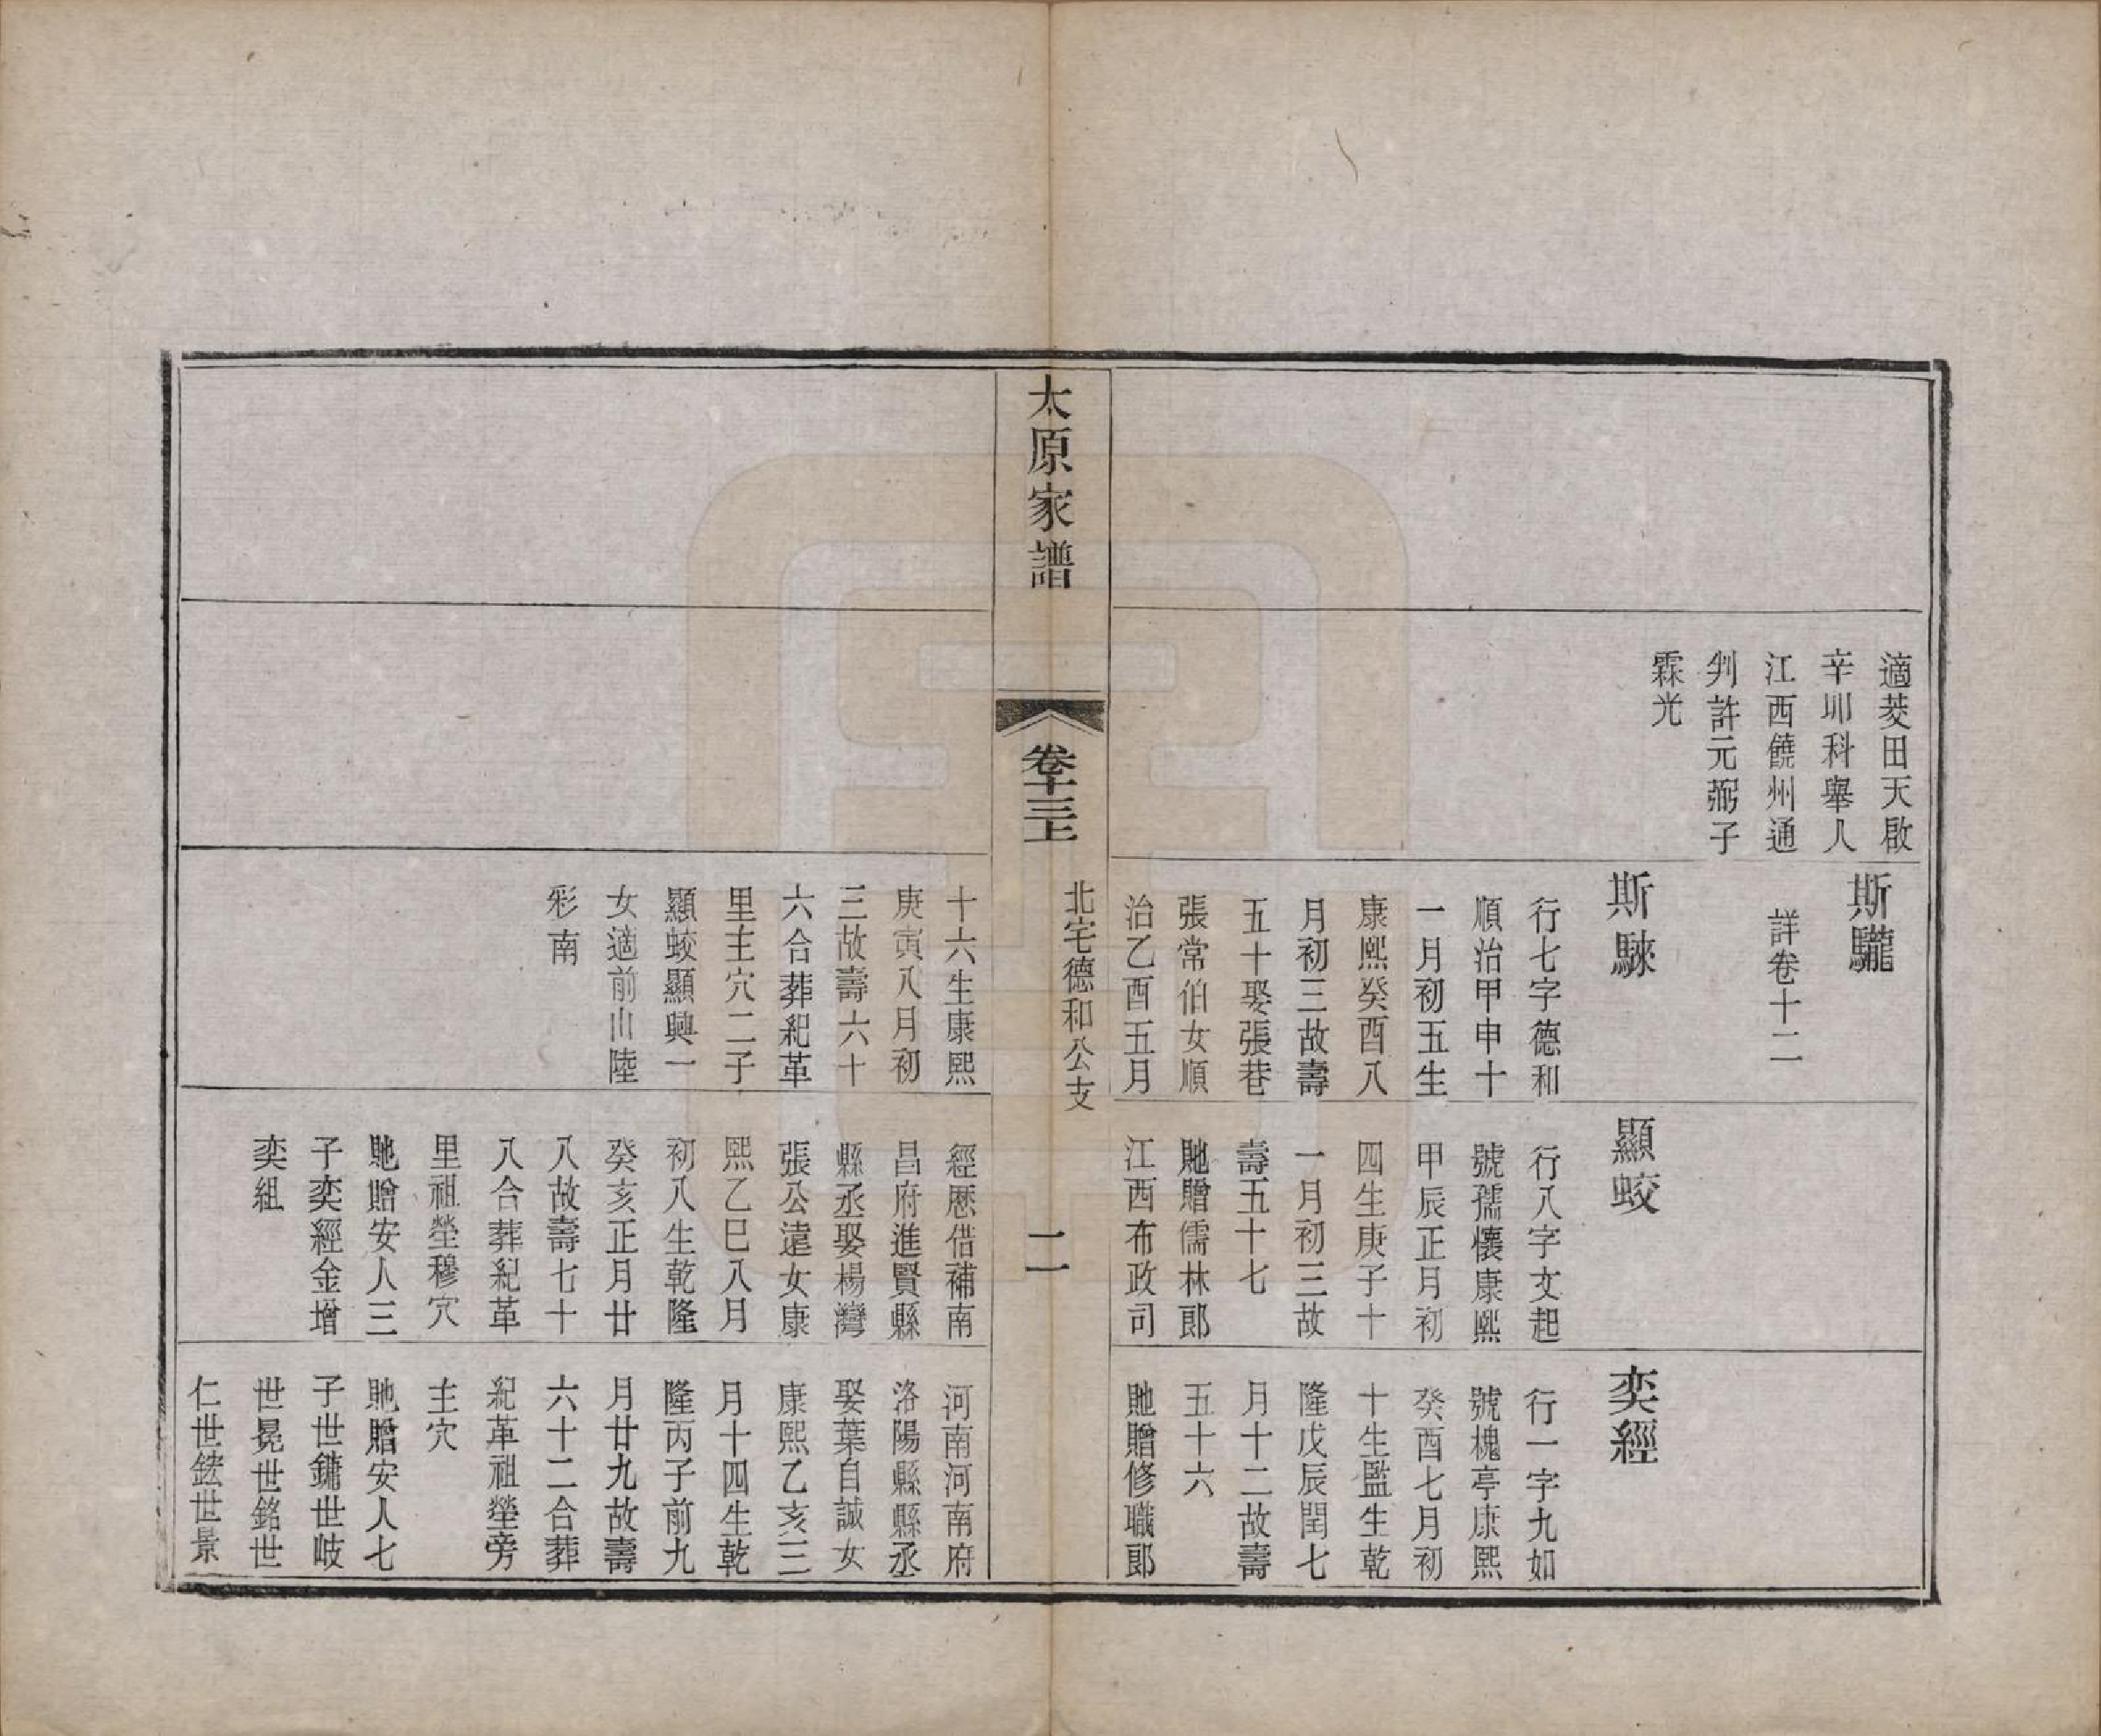 適菼田天啟
辛卯科舉人
江西饒州通
判許元弼子
霖光
斯驪
詳卷十二
斯騋
行七字德和
順治甲申十
一月初五生
康熙癸酉八
月初三故壽
五十娶張巷
張常伯女順
治乙酉五月
顯蛟
行八字文起
號孺懷康熙
甲辰正月初
四生庚子十
一月初三故
壽五十七
貤贈儒林郎
江西布政司
奕經
行一字九如
號槐亭康熙
癸酉七月初
十生監生乾
隆戊辰閏七
月十二故壽
五十六
貤贈修職郎
太原家譜
卷十三上
北宅德和公支
二
十六生康熙
庚寅八月初
三故壽六十
六合葬紀革
里主穴二子
顯蛟顯興一
女適前山陸
彩南
經歷借補南
昌府進賢縣
縣丞娶楊灣
張公遠女康
熙乙巳八月
初八生乾隆
癸亥正月廿
八故壽七十
八合葬紀革
里祖塋穆穴
貤贈安人三
子奕經金增
奕組
河南河南府
洛陽縣縣丞
娶葉自誠女
康熙乙亥三
月十四生乾
隆丙子前九
月廿九故壽
六十二合葬
紀革祖塋旁
主穴
貤贈安人七
子世鏞世岐
世晃世銘世
仁世鋐世景